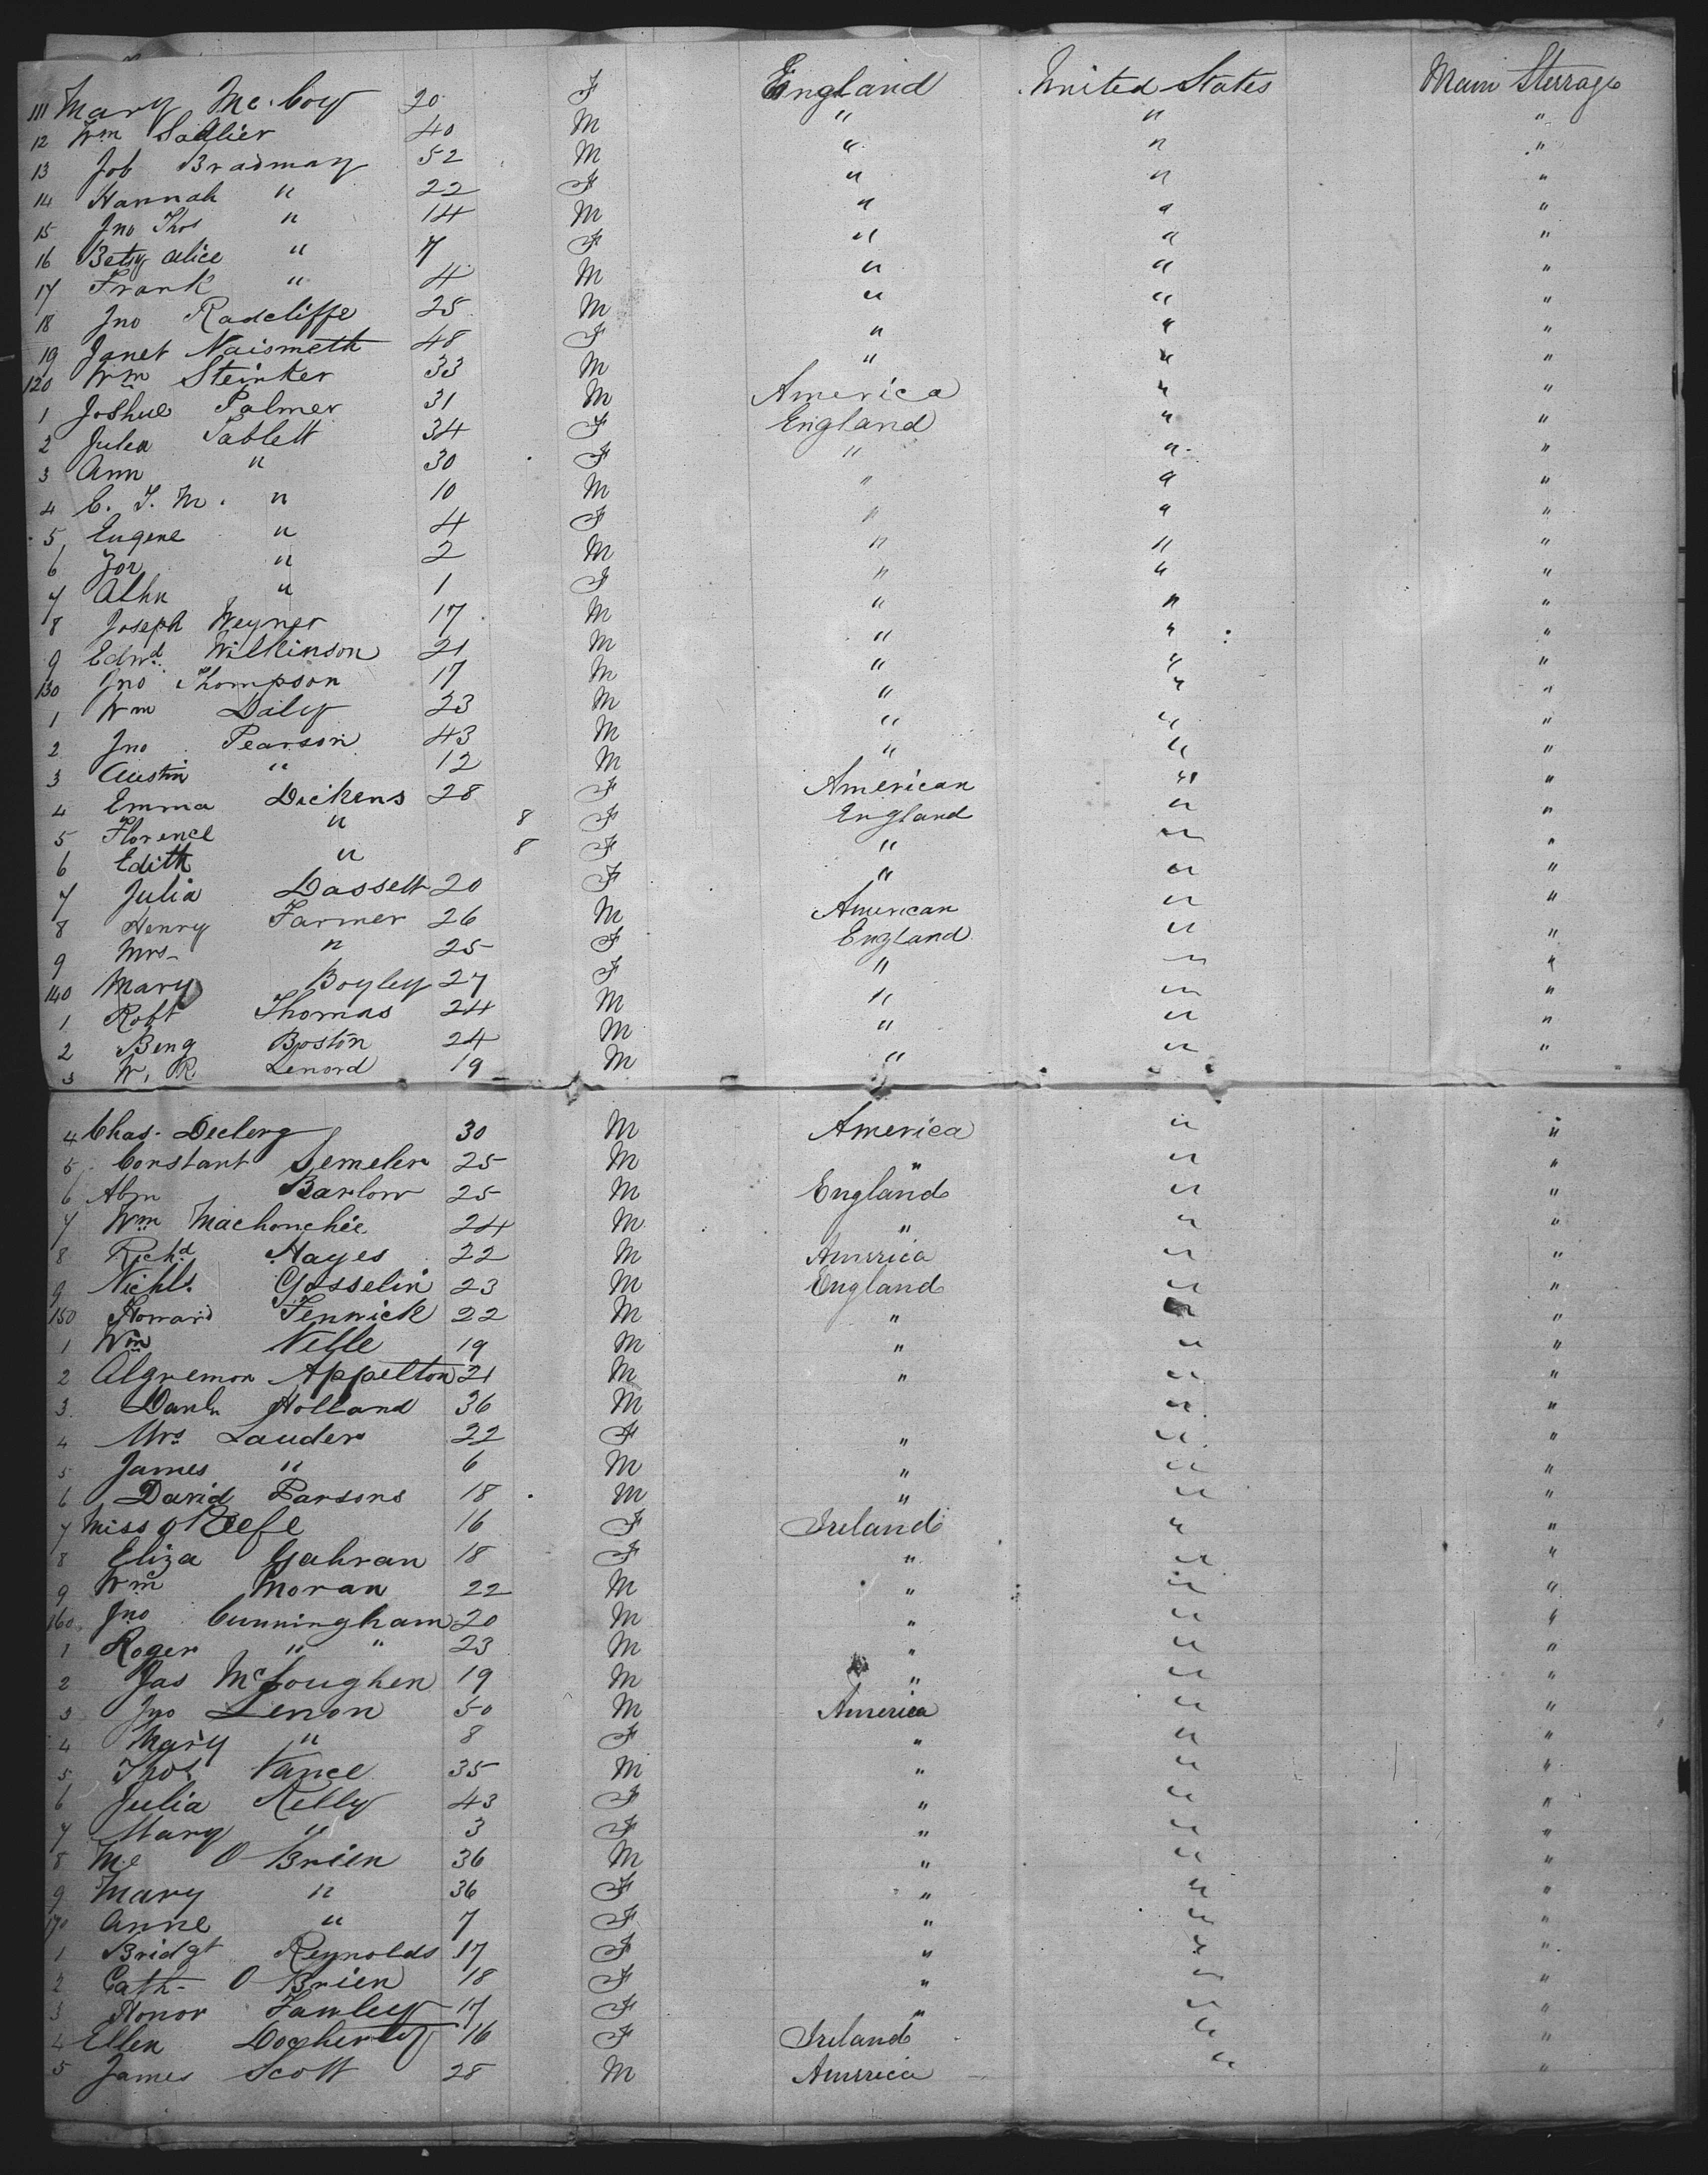 111 Mary Mc. Coy 20 F England United States Main Sterrage
12 Wm Sadlier 40 M " " "
13 Job Bradmay 52 M " " "
14 Hannah " 22 F " " "
15 Jno Thos " 14 M " " "
16 Betsy alice " 7 F " " "
17 Frank " 4 M " " "
18 Jno Radcliffe 25 M " " "
19 Janet Naismeth 48 F " " "
120 Wm Steinker 33 M " " "
1 Joshue Palmer 31 M America " "
2 Julea Sablett 34 F England " "
3 Ann " 30 F " " "
4 C. T. M. " 10 M " " "
5 Eugene " 4 F " " "
6 " 2 M " " "
7 " 1 F " " "
8 Joseph Weyner 17 M " " "
9 Edwd Wilkinson 21 M " " "
130 Jno Thompson 17 M " " "
1 Wm Daly 23 M " " "
2 Jno Pearson 43 M " " "
3 Austin " 12 M " " "
4 Emma Dickens 28 F American " "
5 Florence " 8 F England " "
6 Edith " 8 F " " "
7 Julia Dassett 20 F " " "
8 Henry Farmer 26 M American " "
9 Mrs " 25 F England " "
140 Mary Boyley 27 F " " "
1 Robt Thomas 24 M " " "
2 Beng Boston 24 M " " "
3 W. R. Lenord 19 M "
4 Chas. Decberg 30 M America " "
5 Constant Semeler 25 M " " "
6 Abm Barlow 25 M England " "
7 Wm Machonchie 24 M " " "
8 Richd Hayes 22 M America " "
9 Nichls. Gosselin 23 M England " "
150 Howard Fenwick 22 M " " "
1 Wm Nelle 19 M " " "
2 Algremon Appelton 21 M " " "
3 Danl Holland 36 M " "
4 Mrs Lauder 22 F " " "
5 James " 6 M " " "
6 David Parsons 18 M " " "
7 Miss O Keefe 16 F Ireland " "
8 Eliza Gahran 18 F " " "
9 Wm Moran 22 M " " "
160 Jno Cunningham 20 M " " "
1 Roger " " 23 M " " "
2 Jas McLoughen 19 M " " "
3 Jno Lenon 50 M America " "
4 Mary " 8 F " " "
5 Thos Vance 35 M " " "
6 Julia Kelly 43 F " " "
7 Mary " 3 F " " "
8 O Brien 36 M " " "
9 Mary " 36 F " " "
170 Anne " 7 F " " "
1 Bridgt Reynolds 17 F " " "
2 Cath- O Brien 18 F " " "
3 Honor Fanley 17 F " " "
4 Ellen Dogherty 16 F Ireland " "
5 James Scott 28 M America " "